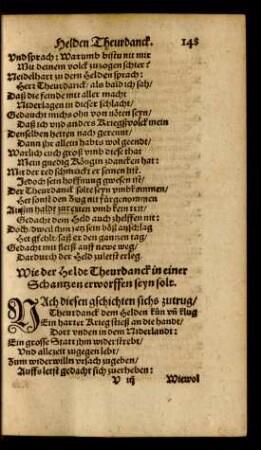 Helden Theurdanck. 148
Vnd sprach: Warumb bistu nit mir
Mit deinem volck zuzogen schier?
Neidelhart zu dem Helden sprach:
Herr Theurdanck/ als bald ich sah/
Daß die feinde mit aller macht
Niderlagen in dieser schlacht/
Gedaucht michs ohn von nöten seyn/
Daß ich vnd anders Kriegsvolck mein
Denselben hetten nach gerennt/
Dann ihr allein habts wol geendt/
Warlich euch groß vmb diese that
Mein gnedig Königin zdancken hat:
Mit der red schmückt er seinen list.
Jedoch sein hoffnung gwesen ist/
Der Theurdanck solte seyn vmbkommen/
Het sonst den zug nit fürgenommen
Gedacht dem Held auch zhelffen nit:
Doch dweil jhm setz sein böß anschlag
Het gfehlt/ saß er den gantzen tag/
Gedacht mit fleiß auff newe weg/
Dardurch der Held zuletst erleg.
Wie der Heldt Theurdanck in einer
Schantzen erworffen seyn solt.
NAch diesen gschichten sichs zutrug/
Theurdanck dem Helden kün vñ klug
Ein harter Krieg stieß an die handt/
Dort vnden in dem Niderlandt:
Ein grosse Statt ihm widerstrebt/
Vnd allezeit zugegen lebt/
Zum widerwilln vrsach zugeben/
Auffs letst gedacht sich zuerheben:
V iij Wiewol